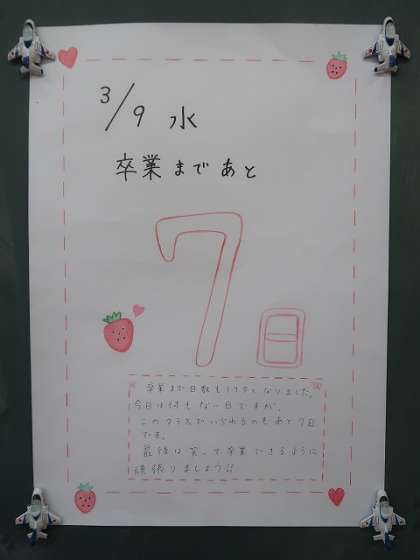 3/9 水
卒業まであと
7日
卒業まで日数も1ケタとなりました。
今日は何もない日ですが、
このクラスでいられるのもあと7日
です。
最後は笑って卒業できるように
頑張りましょう!!